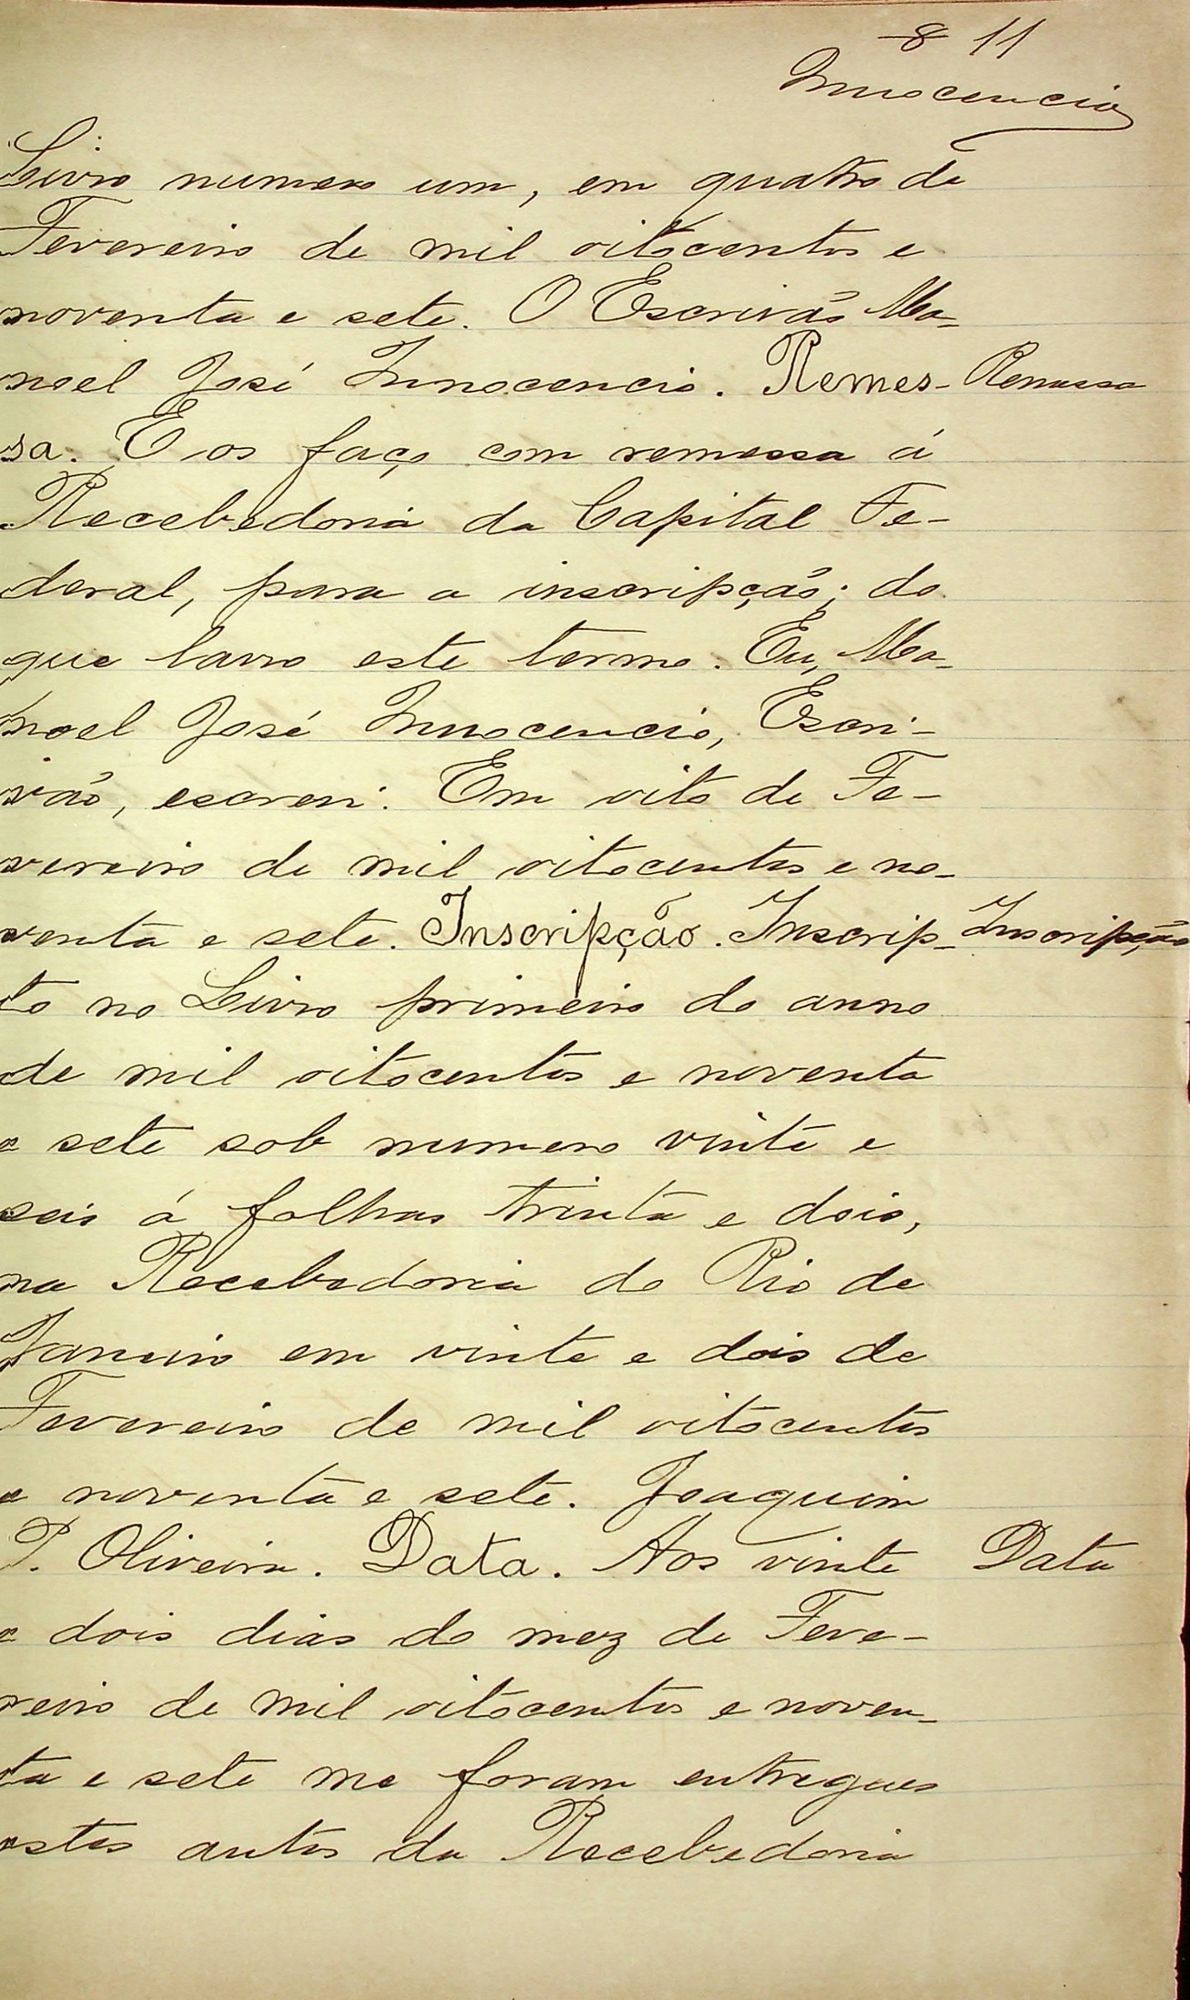 8 11
Innocencio
Livro numero um, em quatro de
Fevereiro de mil oitocentos e
noventa e sete. O Escrivão Ma-
noel José Innocencio. Remes- Remessa
sa. E os faço com remessa á
Recebedoria da Capital Fe-
deral, para a inscripção; do
que lavro este termo. Eu, Ma-
noel José Innocencio, Escri-
vão, escrevi. Em oito de Fe-
vereiro de mil oitocentos e no-
venta e sete. Inscripção. Inscrip- Inscripção
to no Livro primeiro do anno
de mil oitocentos e noventa
e sete sob numero vinte e
seis á folhas trinta e dois,
na Recebedoria do Rio de
Janeiro em vinte e dois de
Fevereiro de mil oitocentos
e noventa e sete. Joaquim
P. Oliveira. Data. Aos vinte Data
e dois dias do mez de Feve-
reiro de mil oitocentos e noven-
ta e sete me foram entregues
estes autos da Recebedoria